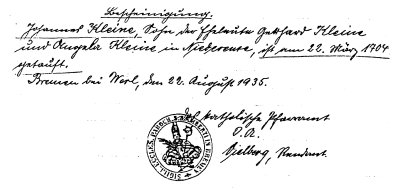 Bescheinigung.
Johannes Kleine, Sohn der Eheleute Gotthard Kleine
und Angela Kleine in Niederense, ist am 22. März 1704
getauft.
Bremen bei Werl, den 22. August 1935.
Das katholische Pfarramt
Bielberg, Rendant.
SIGILL. ECCLES. PAROCH. LAMBERTI IN BREMEN